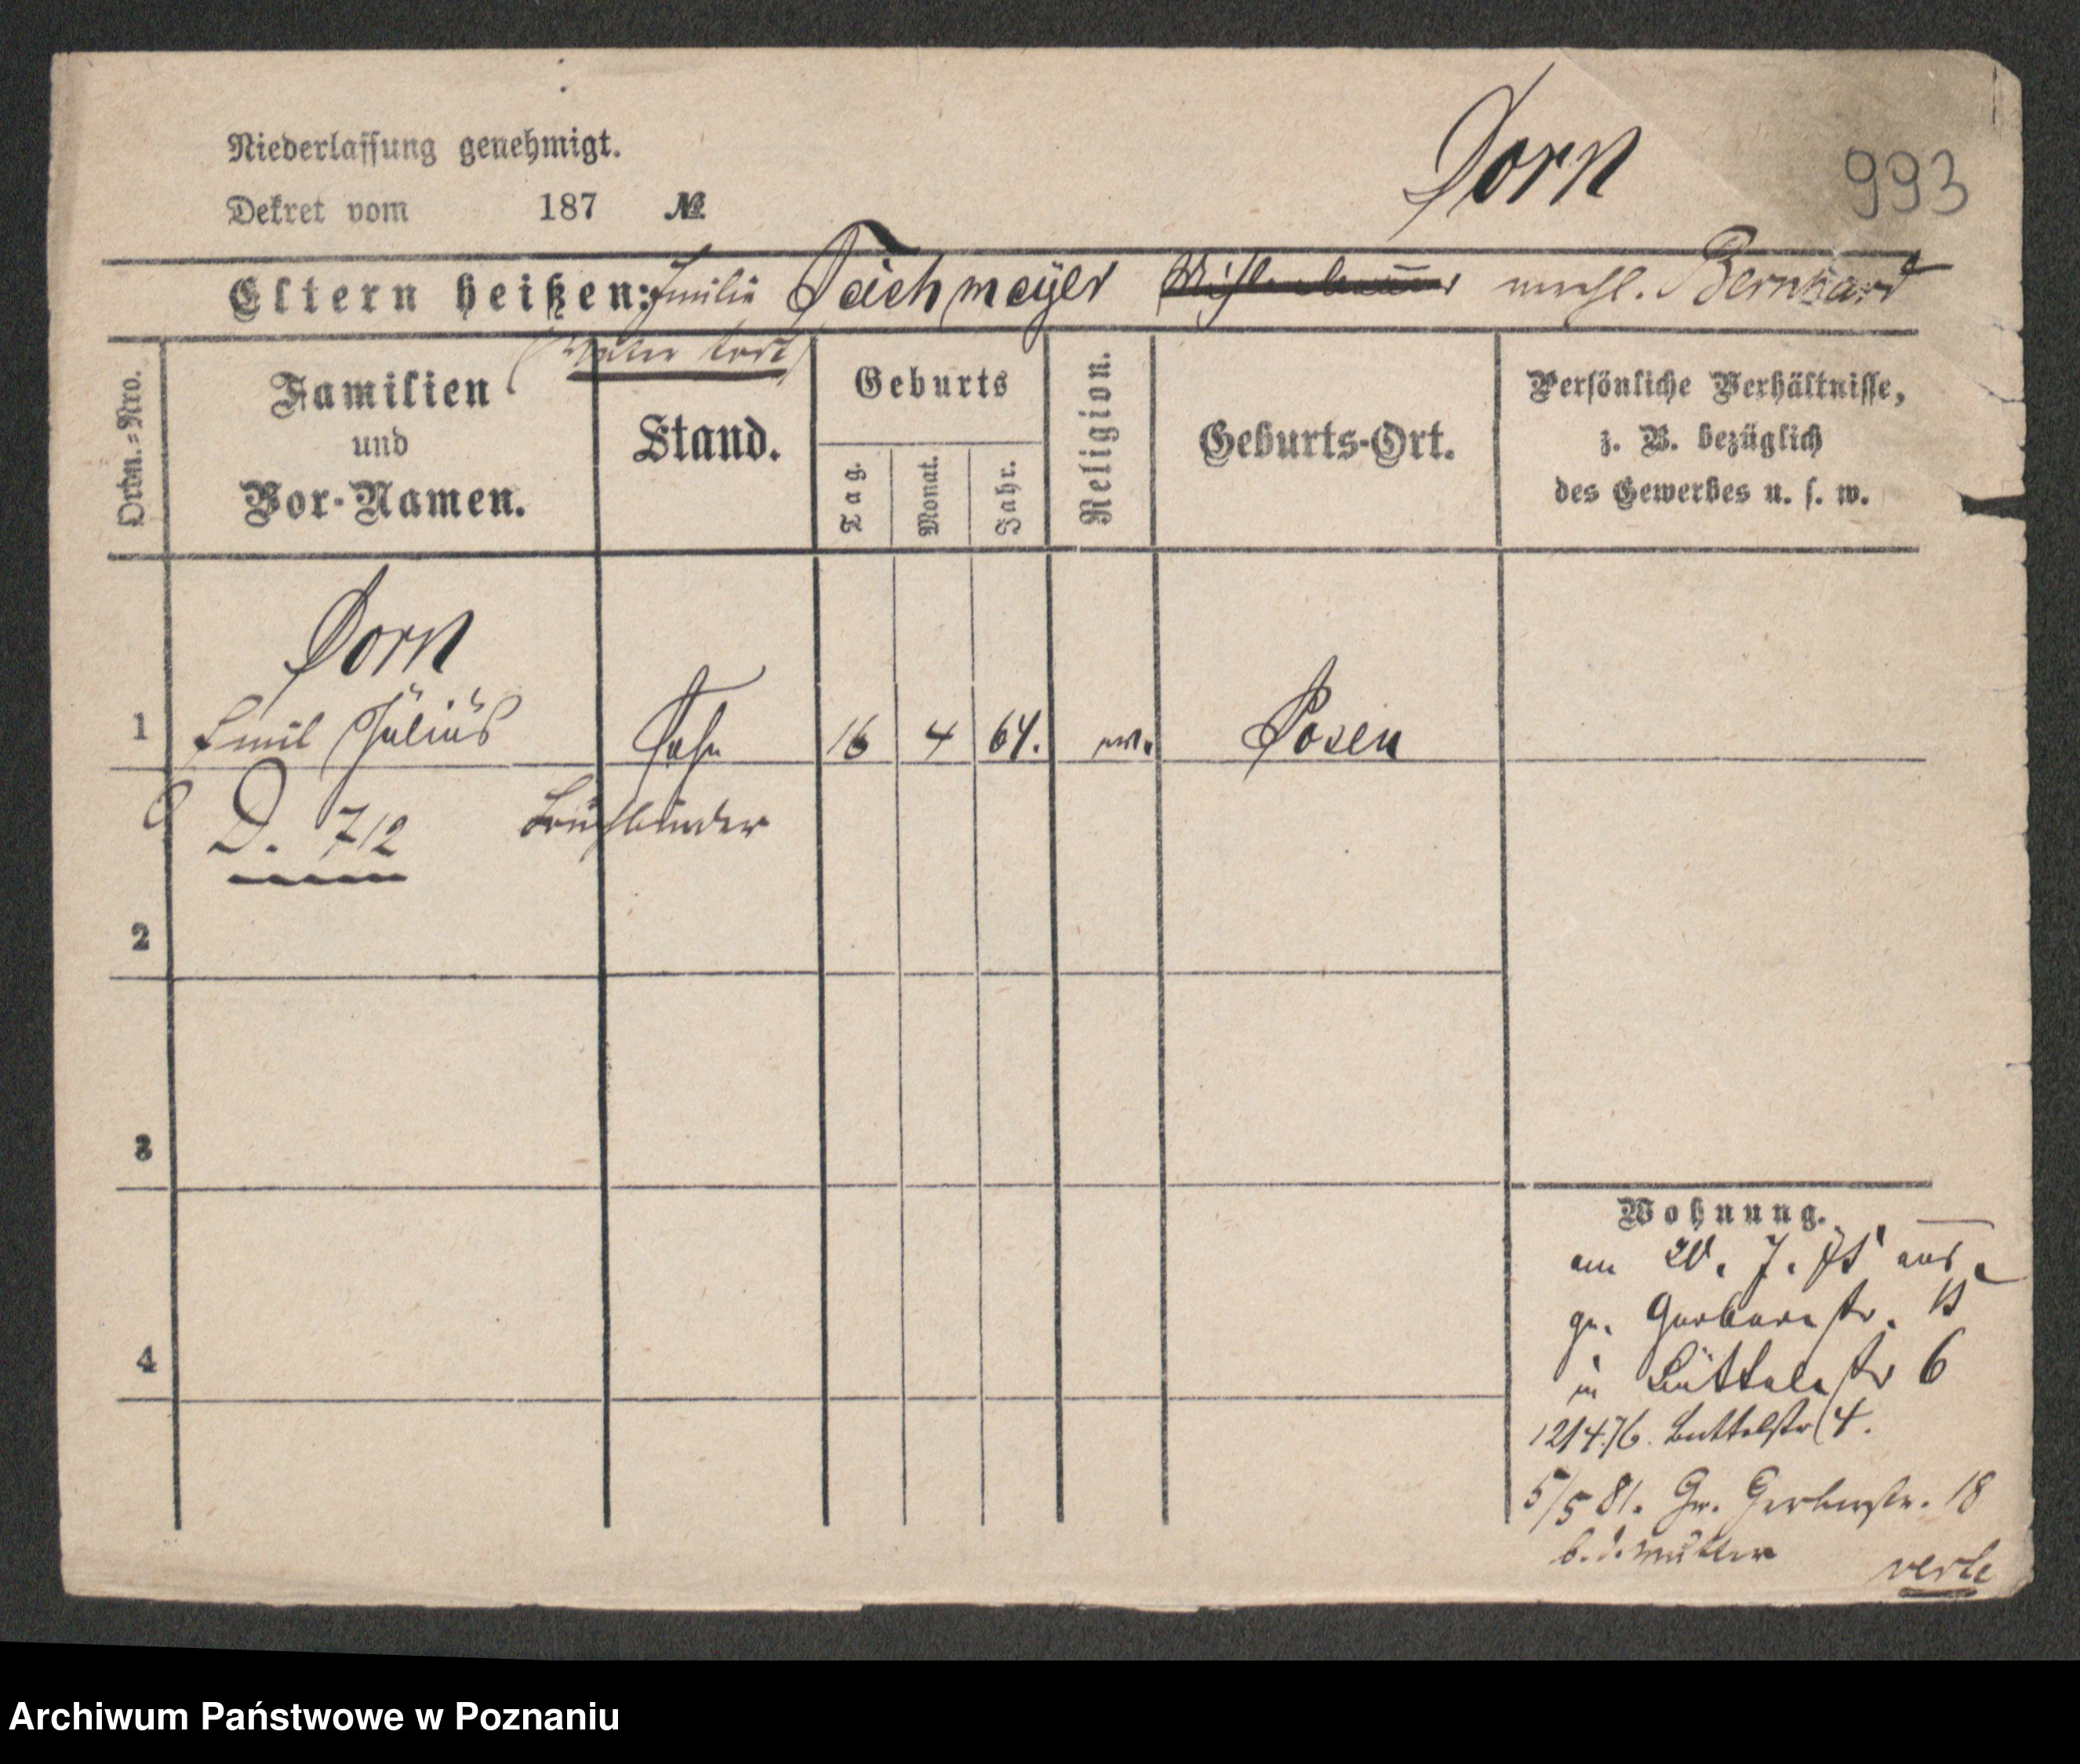 Niederlassung genehmigt.
Dekret vom 187 №
Dorn
993
Eltern heißen: Emilie Teichmeÿer verehl. Bernhard
(Vater todt)
Ordn.-Nro.
Familien
und
Vor-Namen.
Stand.
Geburts
Tag.
Monat.
Jahr.
Religion.
Geburts-Ort.
Persönliche Verhältnisse,
z. B. bezüglich
des Gewerbes u. s. w.
Dorn
1 Emil Julius Sohn 16 4 64. ev. Posen
D. 712 Buchbinder
2
3
4
Wohnung.
am 20. 7. aus
gr. Gerberstr.
in Büttelstr 6
12/4.76. Büttelstr 4.
5/5 81. Gr. Gerberstr. 18
b. d. Mutter
Archiwum Państwowe w Poznaniu